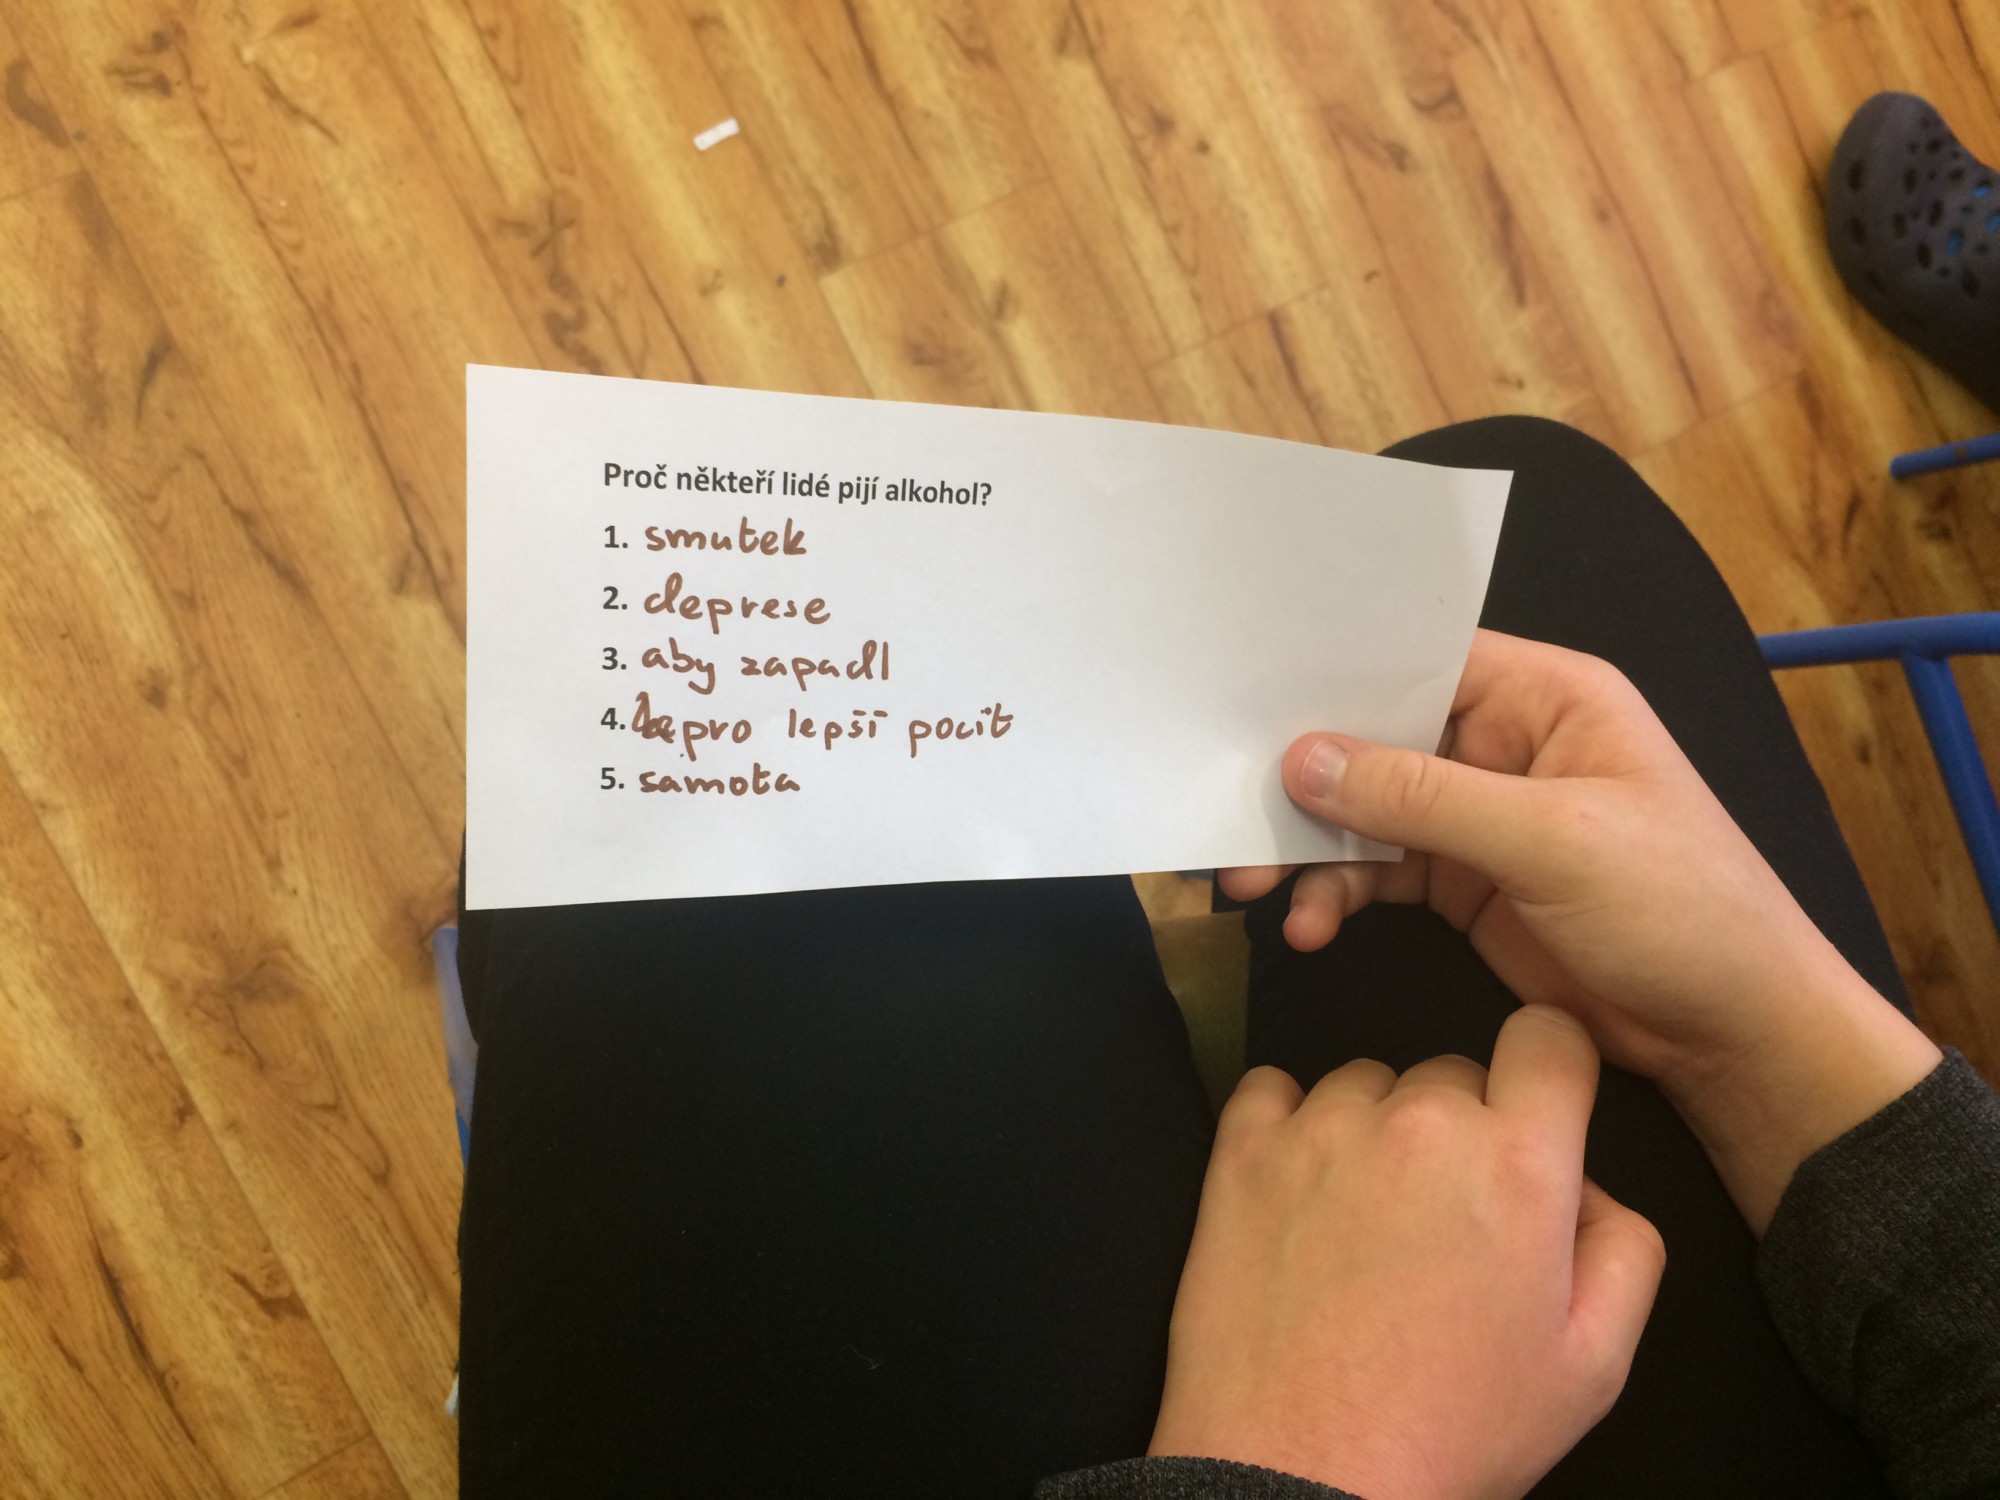 Proč někteří lidé pijí alkohol?
1. smutek
2. deprese
3. aby zapadl
4. pro lepší pocit
5. samota